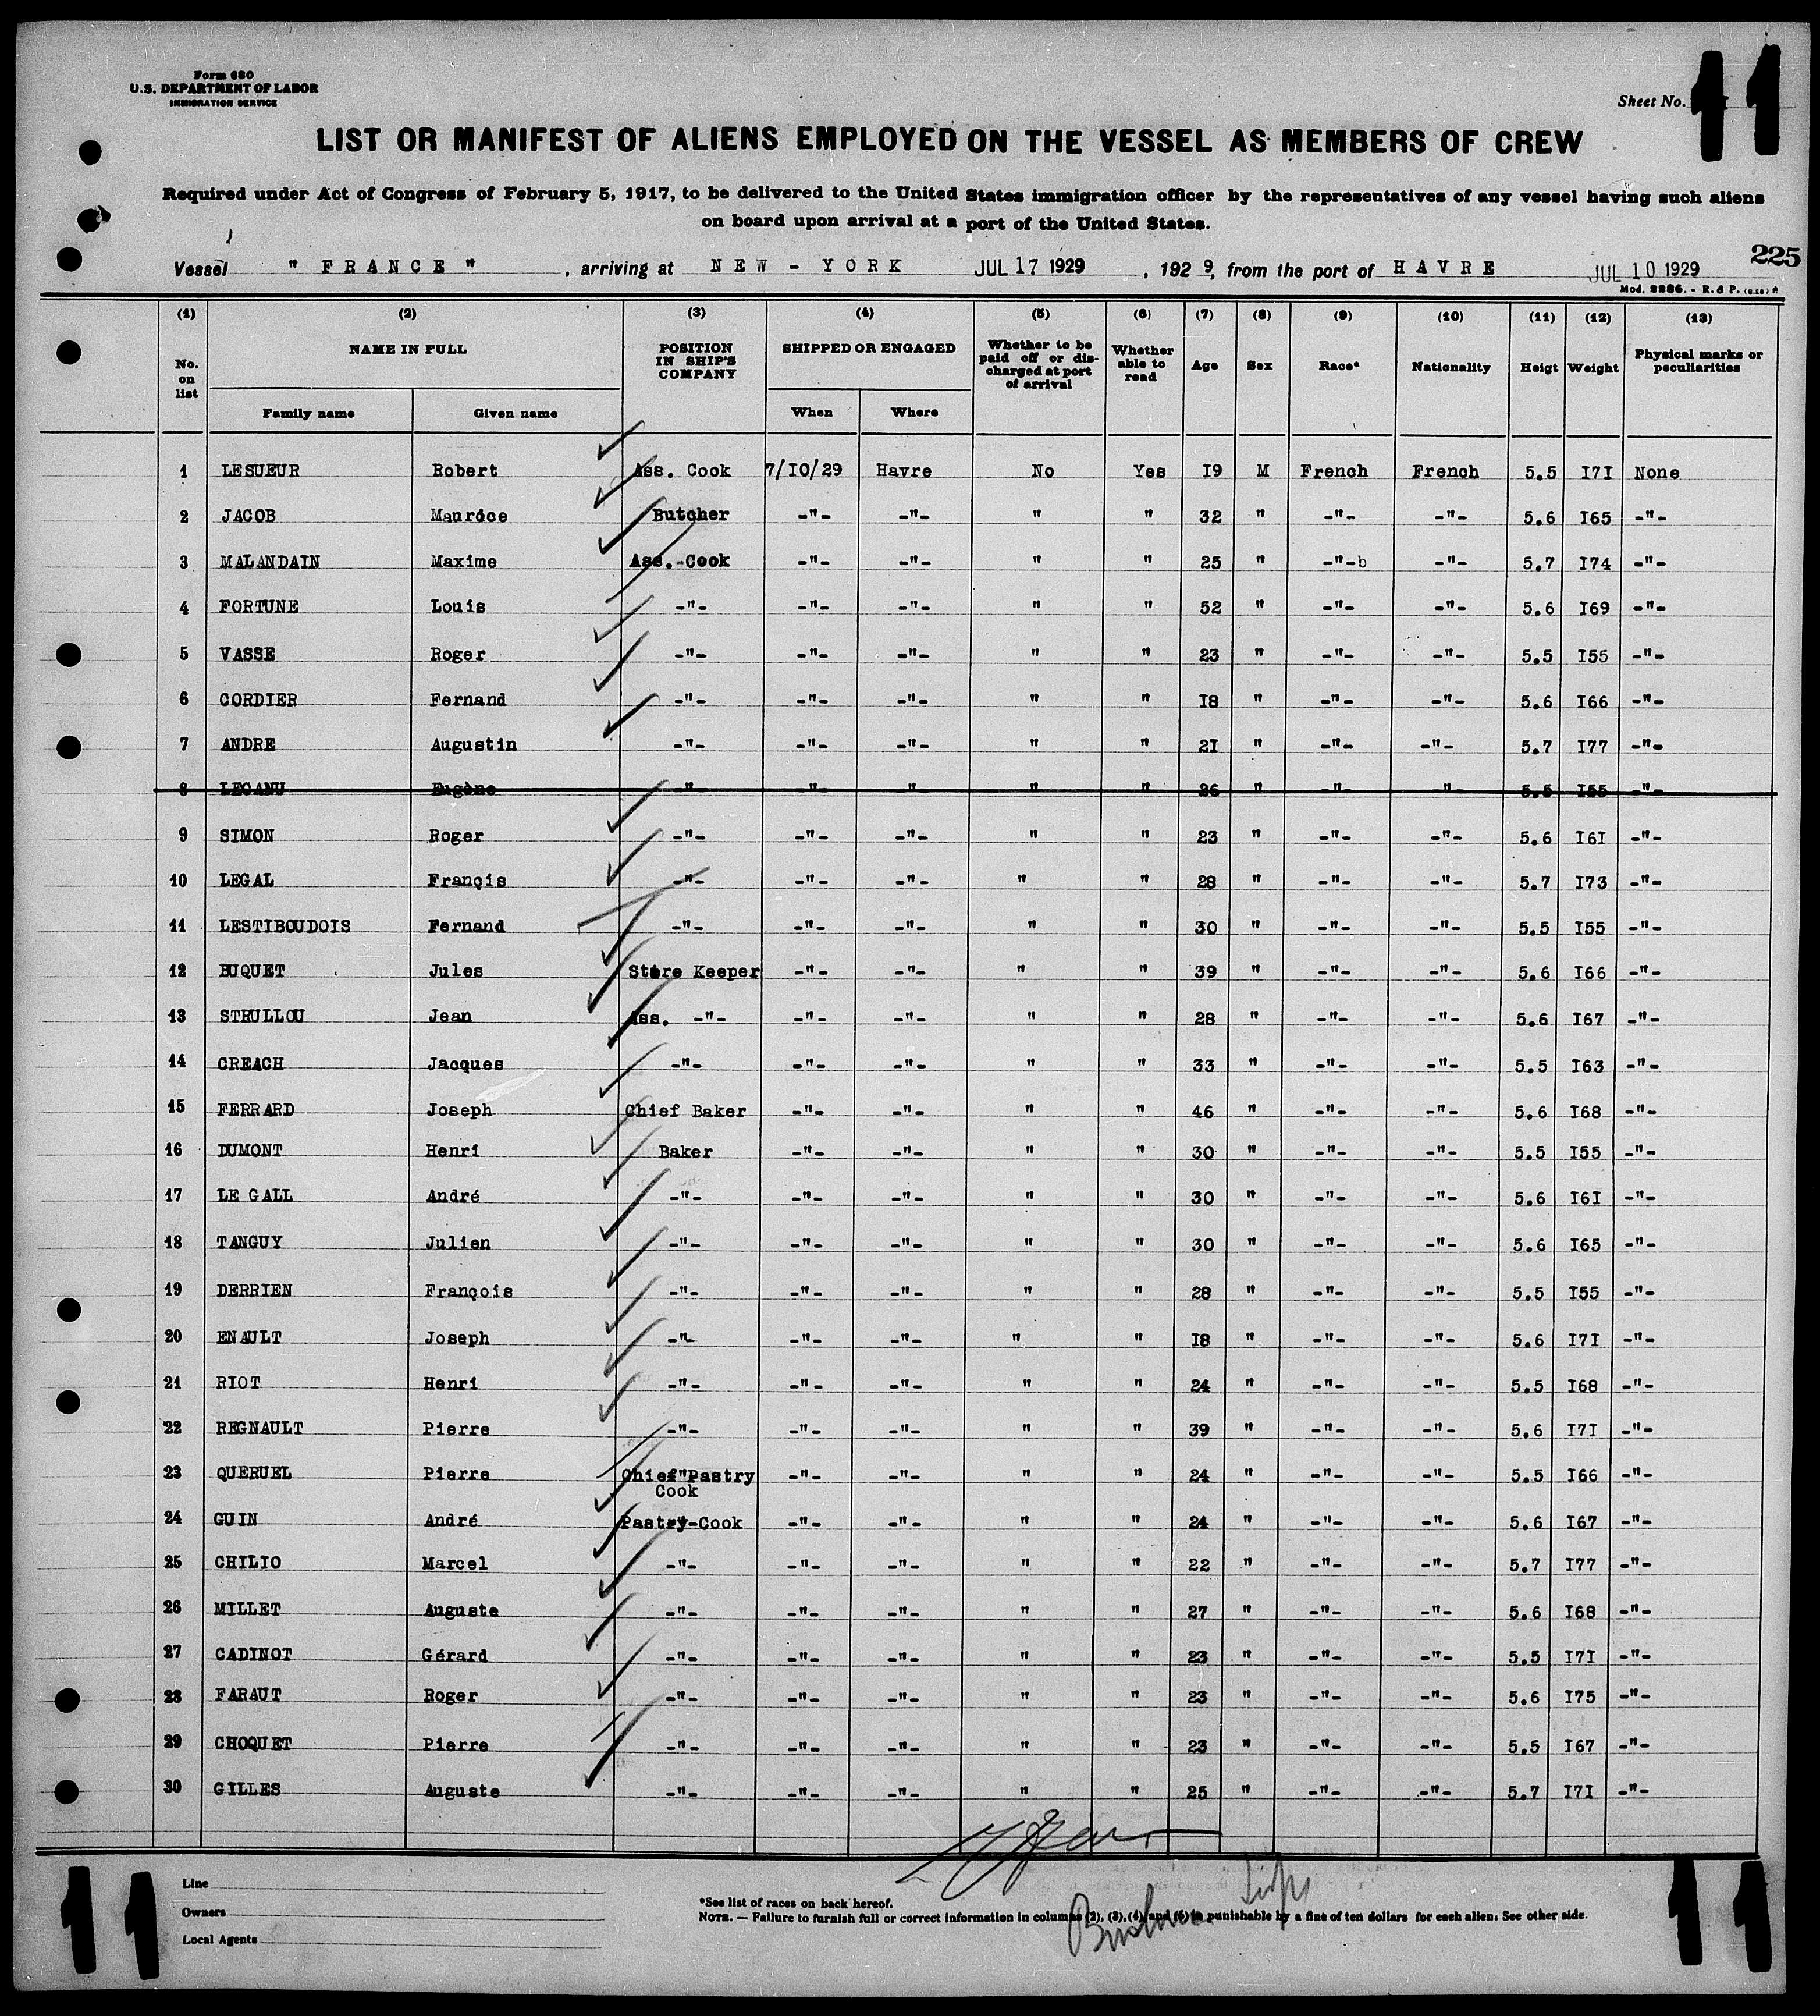 Form 680
U.S. DEPARTMENT OF LABOR
IMMIGRATION SERVICE
Sheet No. 11
LIST OR MANIFEST OF ALIENS EMPLOYED ON THE VESSEL AS MEMBERS OF CREW
Required under Act of Congress of February 5, 1917, to be delivered to the United States immigration officer by the representatives of any vessel having such aliens
on board upon arrival at a port of the United States.
225
Vessel " FRANCE " , arriving at NEW - YORK JUL 17 1929 , 1929, from the port of HAVRE JUL 10 1929
Mod. 2286. - R. & P.
(1) (2) (3) (4) (5) (6) (7) (8) (9) (10) (11) (12) (13)
No. on list NAME IN FULL POSITION IN SHIP'S COMPANY SHIPPED OR ENGAGED Whether to be paid off or discharged at port of arrival Whether able to read Age Sex Race* Nationality Heigt Weight Physical marks or peculiarities
Family name Given name When Where
1 LESUEUR Robert Ass. Cook 7/I0/29 Havre No Yes I9 M French French 5.5 I7I None
2 JACOB Mauróce Butcher -"- -"- " " 32 " -"- -"- 5.6 I65 -"-
3 MALANDAIN Maxime Ass.-Cook -"- -"- " " 25 " -"-b -"- 5.7 I74 -"-
4 FORTUNE Louis -"- -"- -"- " " 52 " -"- -"- 5.6 I69 -"-
5 VASSE Roger -"- -"- -"- " " 23 " -"- -"- 5.5 I55 -"-
6 CORDIER Fernand -"- -"- -"- " " I8 " -"- -"- 5.6 I66 -"-
7 ANDRE Augustin -"- -"- -"- " " 2I " -"- -"- 5.7 I77 -"-
8 LECANU Eugène -"- -"- -"- " " 26 " -"- -"- 5.5 I55 -"-
9 SIMON Roger -"- -"- -"- " " 23 " -"- -"- 5.6 I6I -"-
10 LEGAL Françis -"- -"- -"- " " 28 " -"- -"- 5.7 I73 -"-
11 LESTIBOUDOIS Fernand -"- -"- -"- " " 30 " -"- -"- 5.5 I55 -"-
12 BUQUET Jules Store Keeper -"- -"- " " 39 " -"- -"- 5.6 I66 -"-
13 STRULLOU Jean Ass. -"- -"- -"- " " 28 " -"- -"- 5.6 I67 -"-
14 CREACH Jacques -"- -"- -"- " " 33 " -"- -"- 5.5 I63 -"-
15 FERRARD Joseph Chief Baker -"- -"- " " 46 " -"- -"- 5.6 I68 -"-
16 DUMONT Henri Baker -"- -"- " " 30 " -"- -"- 5.5 I55 -"-
17 LE GALL André -"- -"- -"- " " 30 " -"- -"- 5.6 I6I -"-
18 TANGUY Julien -"- -"- -"- " " 30 " -"- -"- 5.6 I65 -"-
19 DERRIEN François -"- -"- -"- " " 28 " -"- -"- 5.5 I55 -"-
20 ENAULT Joseph -"- -"- -"- " " I8 " -"- -"- 5.6 I7I -"-
21 RIOT Henri -"- -"- -"- " " 24 " -"- -"- 5.5 I68 -"-
22 REGNAULT Pierre -"- -"- -"- " " 39 " -"- -"- 5.6 I7I -"-
23 QUERUEL Pierre Chief"Pastry -"- -"- " " 24 " -"- -"- 5.5 I66 -"-
Cook
24 GUIN André Pastry-Cook -"- -"- " " 24 " -"- -"- 5.6 I67 -"-
25 CHILIO Marcel -"- -"- -"- " " 22 " -"- -"- 5.7 I77 -"-
26 MILLET Auguste -"- -"- -"- " " 27 " -"- -"- 5.6 I68 -"-
27 CADINOT Gérard -"- -"- -"- " " 23 " -"- -"- 5.5 I7I -"-
28 FARAUT Roger -"- -"- -"- " " 23 " -"- -"- 5.6 I75 -"-
29 CHOQUET Pierre -"- -"- -"- " " 23 " -"- -"- 5.5 I67 -"-
30 GILLES Auguste -"- -"- -"- " " 25 " -"- -"- 5.7 I7I -"-
11 11
Line
Owners
Local Agents
*See list of races on back hereof.
NOTE. — Failure to furnish full or correct information in columns (2), (3), (4) and (5) is punishable by a fine of ten dollars for each alien. See other side.